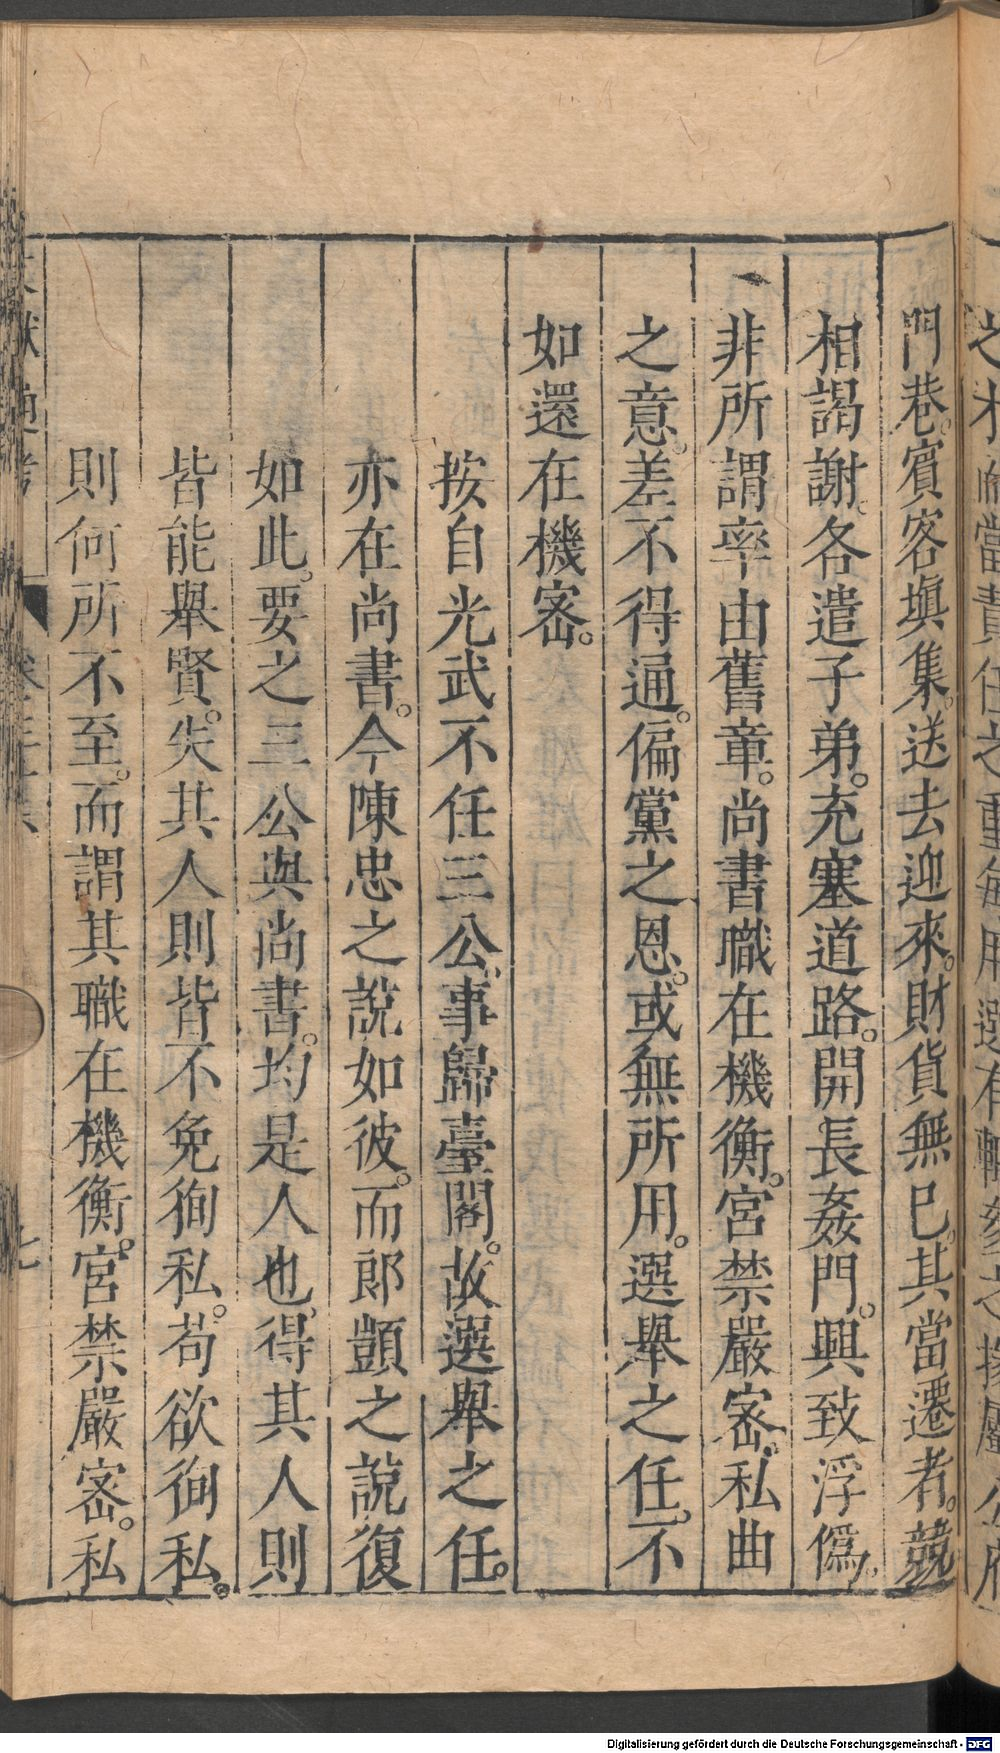 門巷。賓客塡集。送去迎來。財貨無已。其當遷者。競
相謁謝。各遣子弟。充塞道路。開長姦門。興致浮僞。
非所謂率由舊章。尚書職在機衡。宮禁嚴密。私曲
之意。差不得通。偏黨之恩。或無所用。選舉之任。不
如還在機密。
按自光武不任三公。事歸臺閣。故選舉之任。
亦在尚書。今陳忠之說如彼。而郎顗之說復
如此。要之三公與尚書。均是人也。得其人則
皆能舉賢。失其人則皆不免徇私。苟欲徇私。
則何所不至。而謂其職在機衡。宮禁嚴密。私
獻通考
七
Digitalisierung gefördert durch die Deutsche Forschungsgemeinschaft - DFG